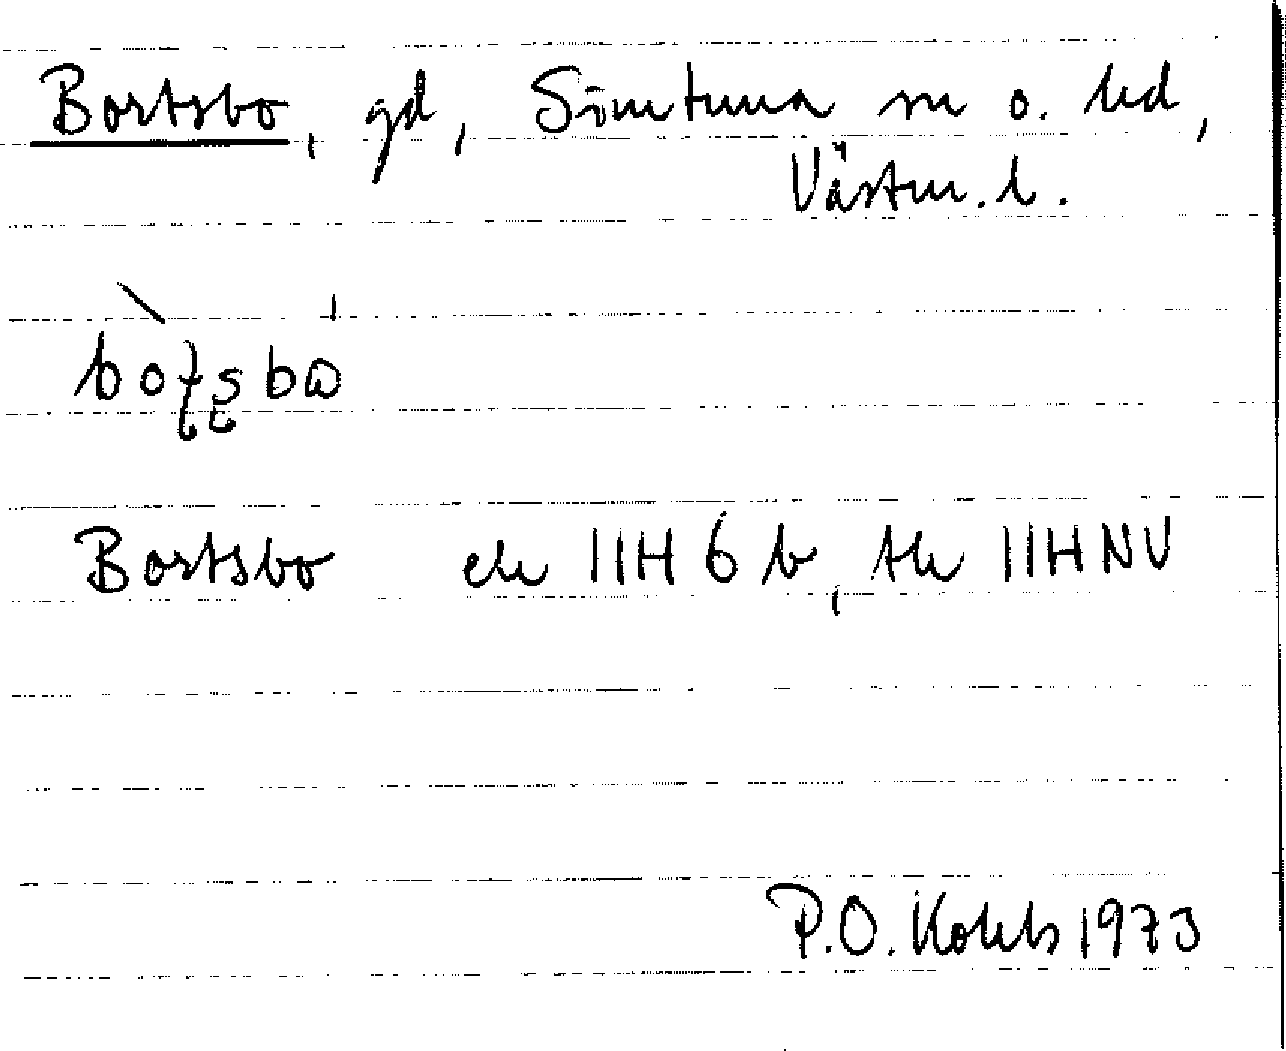 Bortsbo, gd, Simtuna sn o. hd,
Västm. l.
Bortsbo ek 11H 6 b, tk 11H NV
P.O. Kolsb 1973